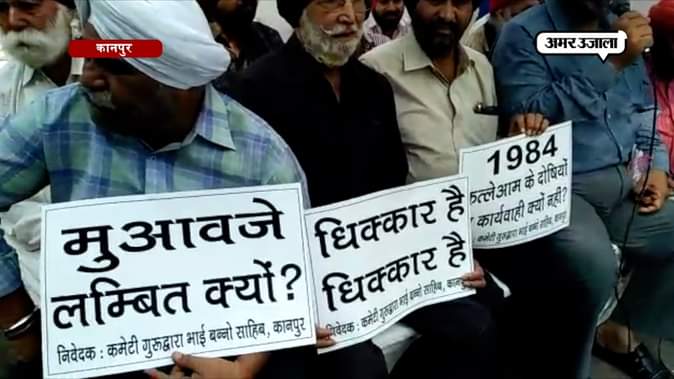 कानपुर
अमर उजाला
मुआवजे
लम्बित क्यों?
निवेदक : कमेटी गुरूद्वारा भाई बन्नो साहिब, कानपुर
धिक्कार है
धिक्कार है
निवेदक : कमेटी गुरूद्वारा भाई बन्नो साहिब, कानपुर
1984
के दोषियों
कार्यवाही क्यों नहीं?
कमेटी गुरूद्वारा भाई बन्नो साहिब, कानपुर